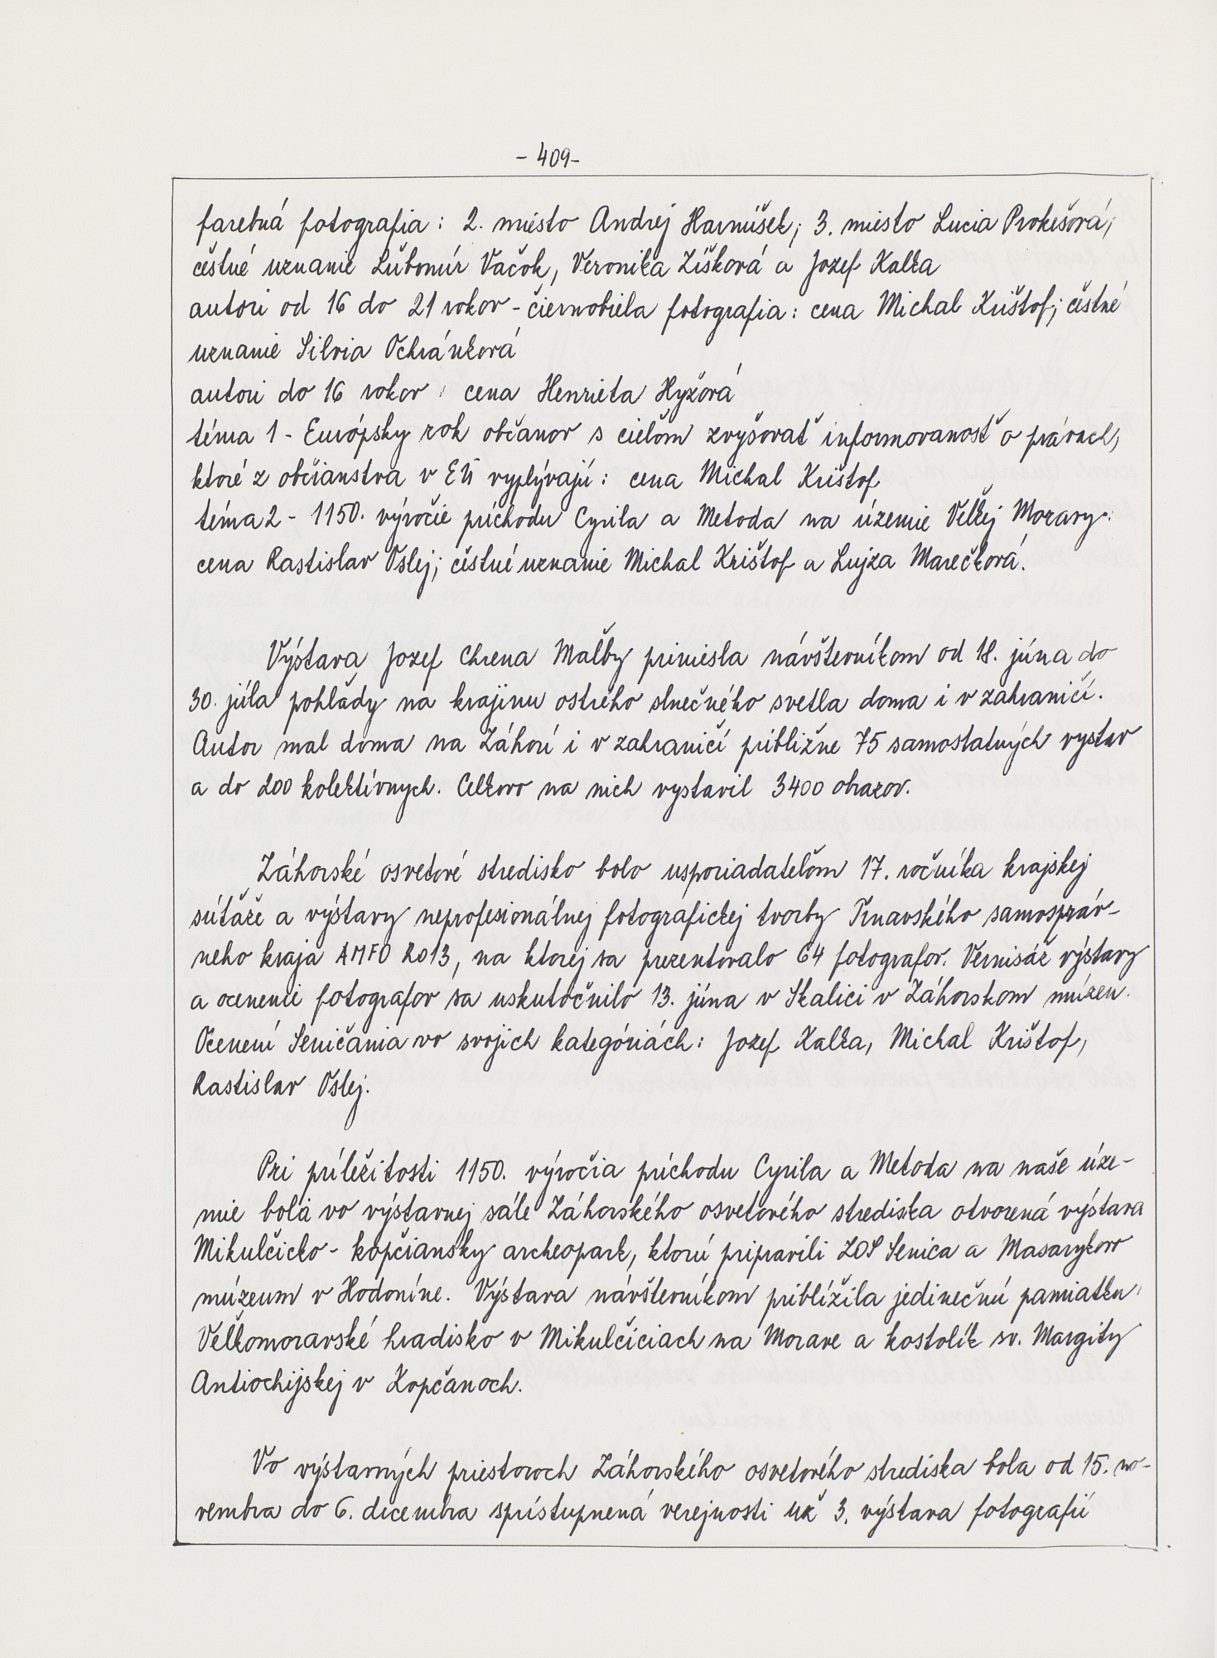 - 409-
farebná fotografia: 2. miesto Andrej Harmíšek; 3. miesto Lucia Prokešová;
čestné uznanie Ľubomír Vačok, Veronika Zíšková a Jozef Kalka
autori od 16 do 21 rokov - čiernobiela fotografia: cena Michal Krištof; čestné
uznanie Silvia Ochránková
autori do 16 rokov: cena Henrieta Hyžová
téma 1 - Európsky rok občanov s cieľom zvyšovať informovanosť o právach,
ktoré z občianstva v EÚ vyplývajú: cena Michal Krištof
téma 2 - 1150. výročie príchodu Cyrila a Metoda na územie Veľkej Moravy:
cena Rastislav Oslej; čestné uznanie Michal Krištof a Lujza Marečková.
Výstava Jozef Chrena Maľby priniesla návštevníkom od 18. júna do
30. júla pohľady na krajinu ostrého slnečného svetla doma i v zahraničí.
Autor mal doma na Záhorí i v zahraničí približne 75 samostatných výstav
a do 200 kolektívnych. Celkovo na nich vystavil 3400 obrazov.
Záhorské osvetové stredisko bolo usporiadateľom 17. ročníka krajskej
súťaže a výstavy neprofesionálnej fotografickej tvorby Trnavského samospráv-
neho kraja AMFO 2013, na ktorej sa prezentovalo 64 fotografov. Vernisáž výstavy
a ocenenie fotografov sa uskutočnilo 13. júna v Skalici v Záhorskom múzeu.
Ocenení Seničania vo svojich kategóriách: Jozef Kalka, Michal Krištof,
Rastislav Oslej.
Pri príležitosti 1150. výročia príchodu Cyrila a Metoda na naše úze-
mie bola vo výstavnej sále Záhorského osvetového strediska otvorená výstava
Mikulčicko - kopčiansky archeopark, ktorú pripravili ZOS Senica a Masarykovo
múzeum v Hodoníne. Výstava návštevníkom priblížila jedinečnú pamiatku:
Veľkomoravské hradisko v Mikulčiciach na Morave a kostolík sv. Margity
Antiochijskej v Kopčanoch.
Vo výstavných priestoroch Záhorského osvetového strediska bola od 15. no-
vembra do 6. decembra sprístupnená verejnosti už 3. výstava fotografií